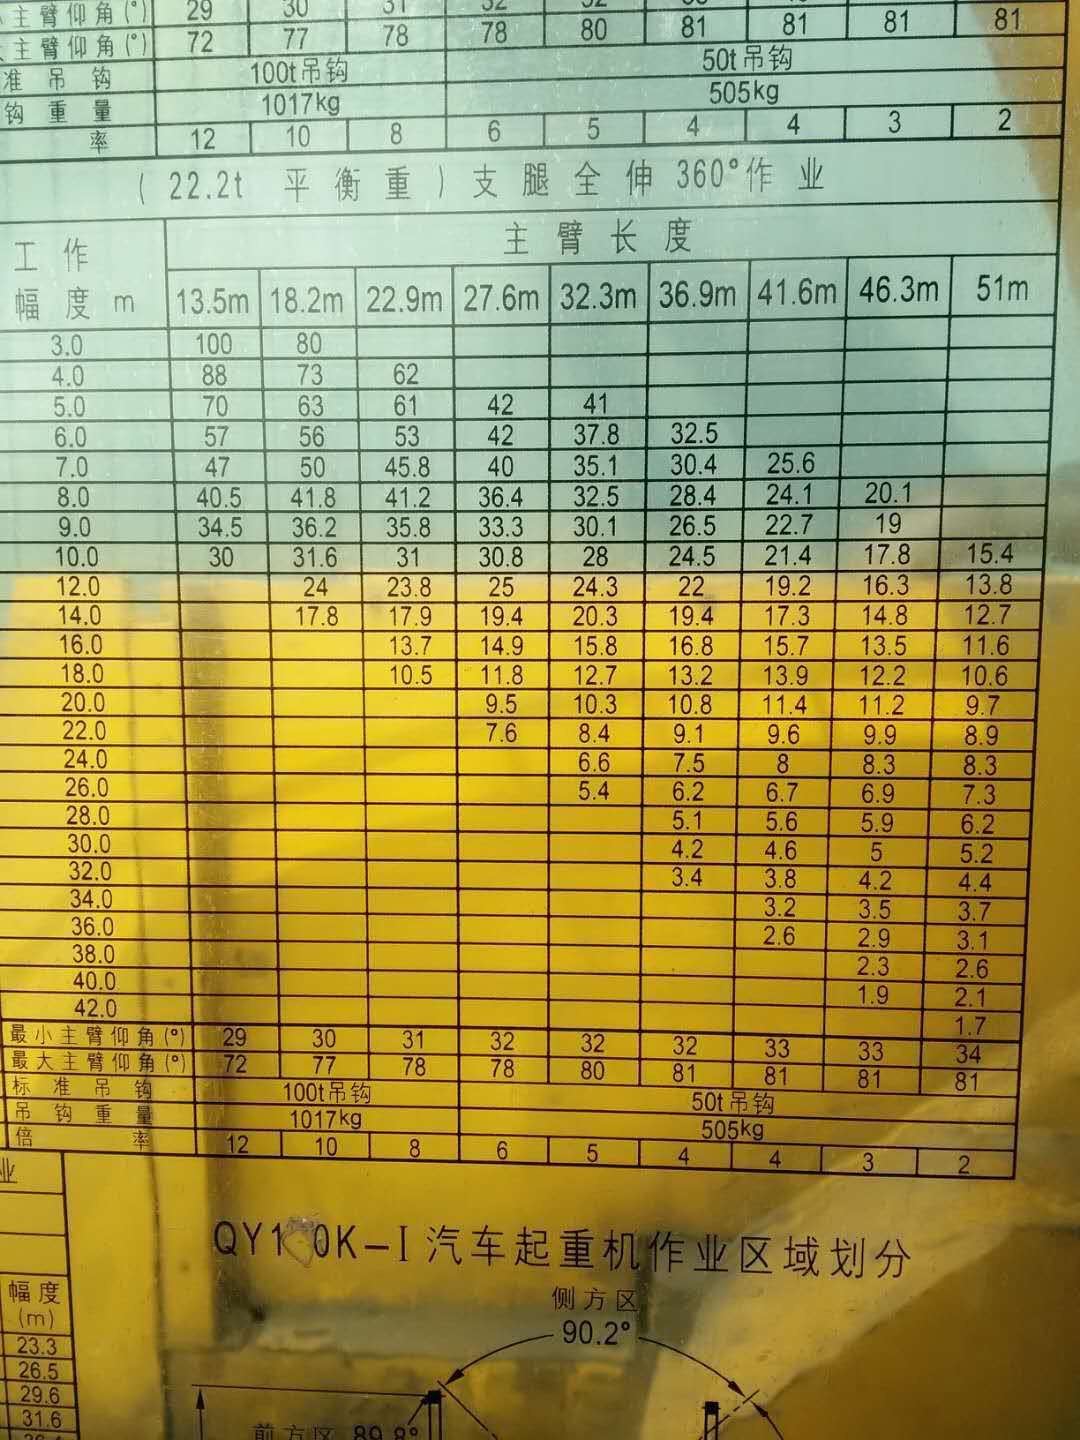 主臂仰角(°) 29 30 31 32 32 81
主臂仰角(°) 72 77 78 78 80 81 81 81 81
准吊钩 100t吊钩 50t吊钩
钩重量 1017kg 505kg
率 12 10 8 6 5 4 4 3 2
(22.2t 平衡重)支腿全伸360°作业
主臂长度
工作
幅度m 13.5m 18.2m 22.9m 27.6m 32.3m 36.9m 41.6m 46.3m 51m
3.0 100 80
4.0 88 73 62
5.0 70 63 61 42 41
6.0 57 56 53 42 37.8 32.5
7.0 47 50 45.8 40 35.1 30.4 25.6
8.0 40.5 41.8 41.2 36.4 32.5 28.4 24.1 20.1
9.0 34.5 36.2 35.8 33.3 30.1 26.5 22.7 19
10.0 30 31.6 31 30.8 28 24.5 21.4 17.8 15.4
12.0 24 23.8 25 24.3 22 19.2 16.3 13.8
14.0 17.8 17.9 19.4 20.3 19.4 17.3 14.8 12.7
16.0 13.7 14.9 15.8 16.8 15.7 13.5 11.6
18.0 10.5 11.8 12.7 13.2 13.9 12.2 10.6
20.0 9.5 10.3 10.8 11.4 11.2 9.7
22.0 7.6 8.4 9.1 9.6 9.9 8.9
24.0 6.6 7.5 8 8.3 8.3
26.0 5.4 6.2 6.7 6.9 7.3
28.0 5.1 5.6 5.9 6.2
30.0 4.2 4.6 5 5.2
32.0 3.4 3.8 4.2 4.4
34.0 3.2 3.5 3.7
36.0 2.6 2.9 3.1
38.0 2.3 2.6
40.0 1.9 2.1
42.0 1.7
最小主臂仰角(°) 29 30 31 32 32 32 33 33 34
最大主臂仰角(°) 72 77 78 78 80 81 81 81 81
标准吊钩 100t吊钩 50t吊钩
吊钩重量 1017kg 505kg
倍率 12 10 8 6 5 4 4 3 2
业
QY1 0K-I汽车起重机作业区域划分
侧方区
90.2°
幅度
(m)
23.3
26.5
29.6
31.6
前方区 89.8°